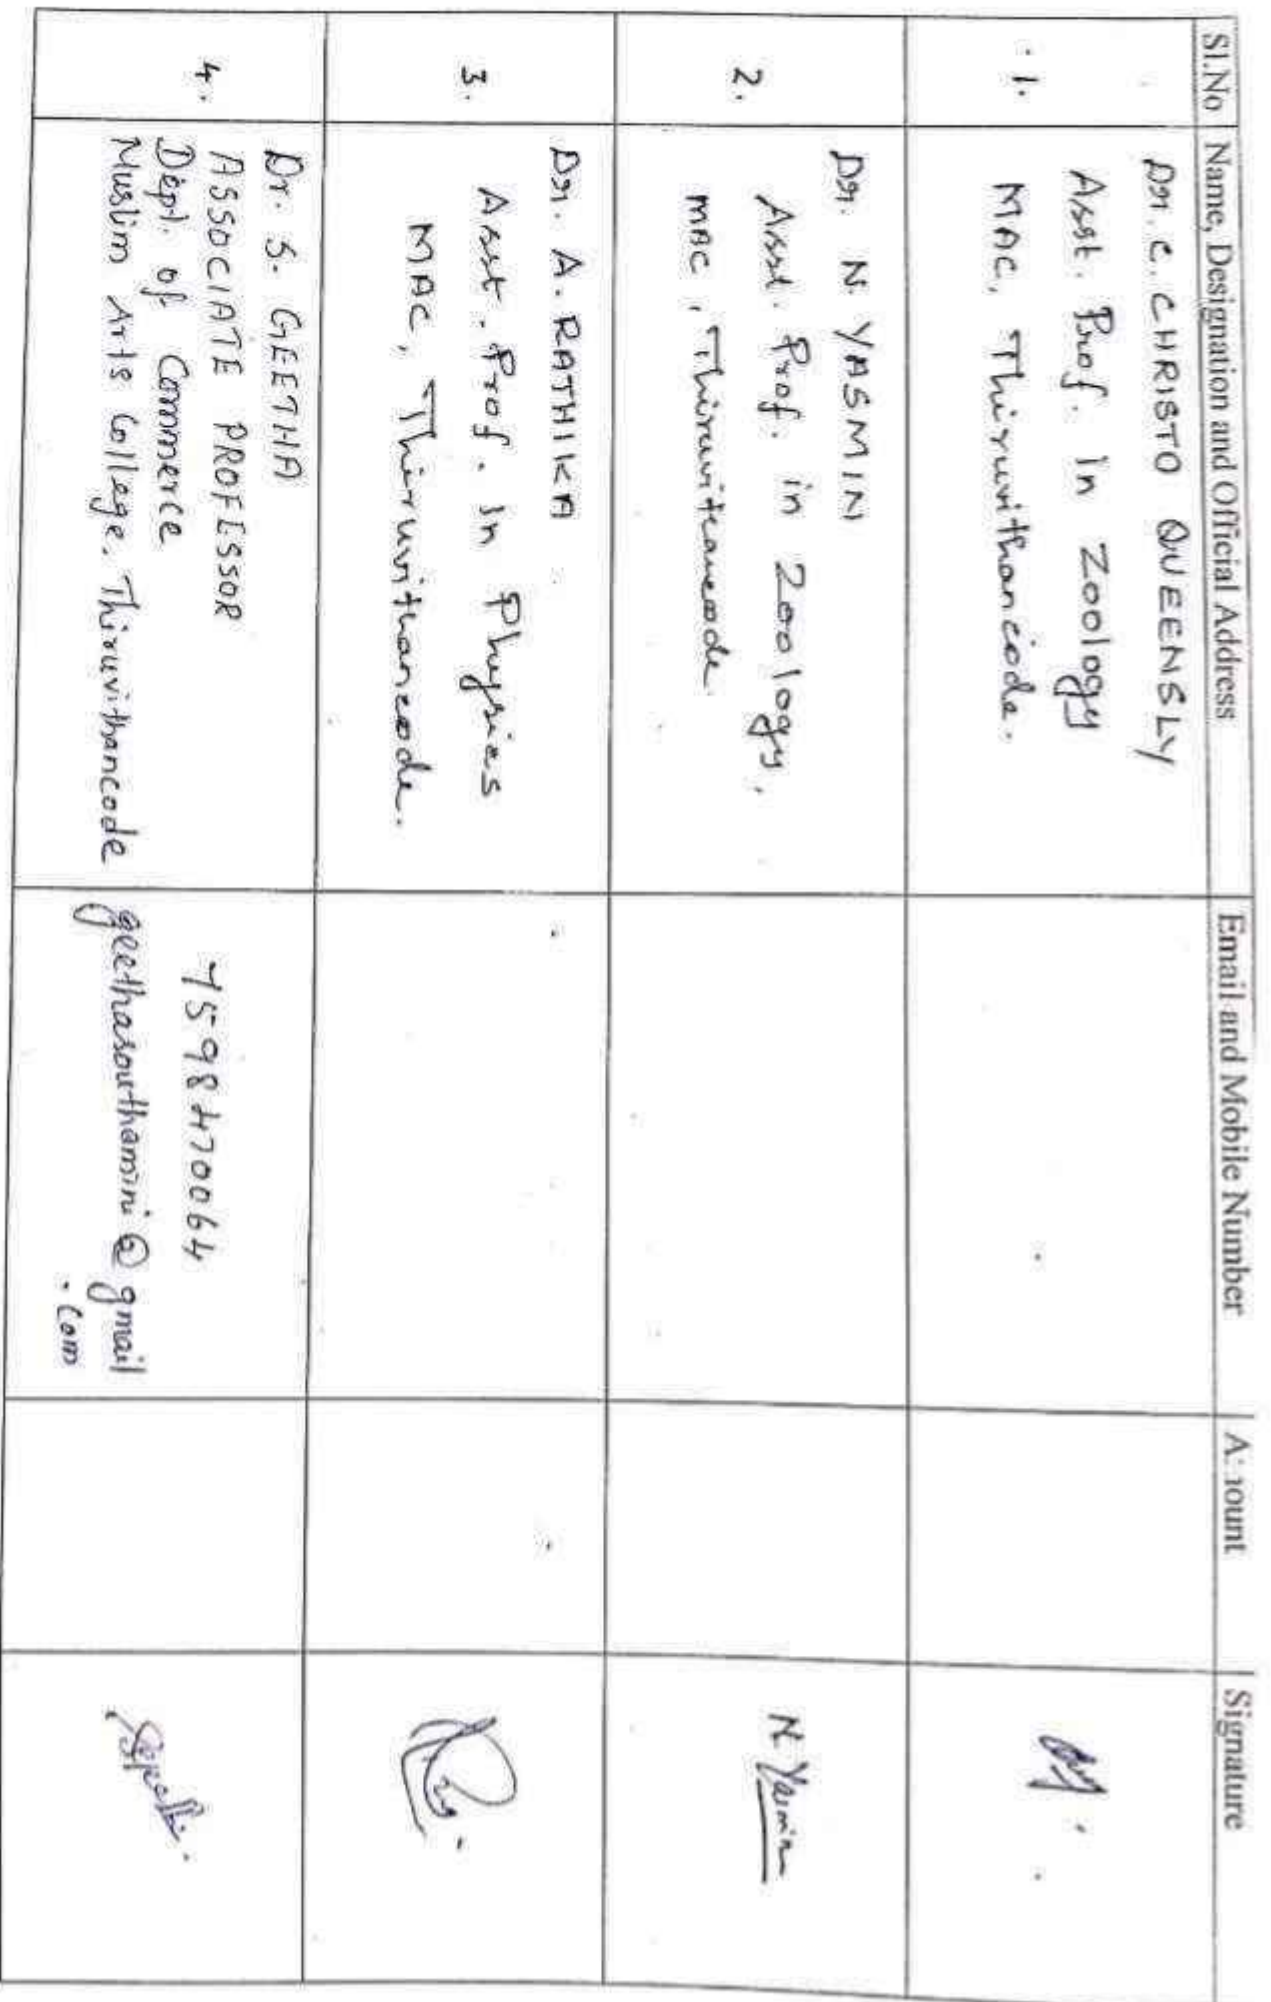 Sl.No Name, Designation and Official Address Email and Mobile Number Amount Signature
1. Dr. C. CHRISTO QUEENSLY
Asst. Prof. in Zoology
MAC, Thiruvithancode.
2. Dr. N. YASMIN
Asst. Prof. in Zoology,
MAC, Thiruvithancode.
N. Yasmin
3. Dr. A. RATHIKA
Asst. Prof. in Physics
MAC, Thiruvithancode.
4. Dr. S. GEETHA
ASSOCIATE PROFESSOR
Dept. of Commerce
Muslim Arts College, Thiruvithancode
7598470064
geethasouthamini@gmail
.com